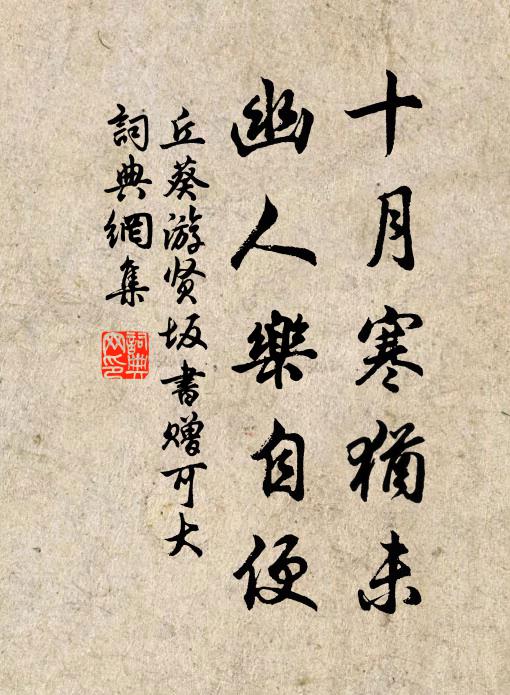 十月寒猶未
幽人樂自便
丘葵游贤坂書贈可大
詞典網集
詞典网印